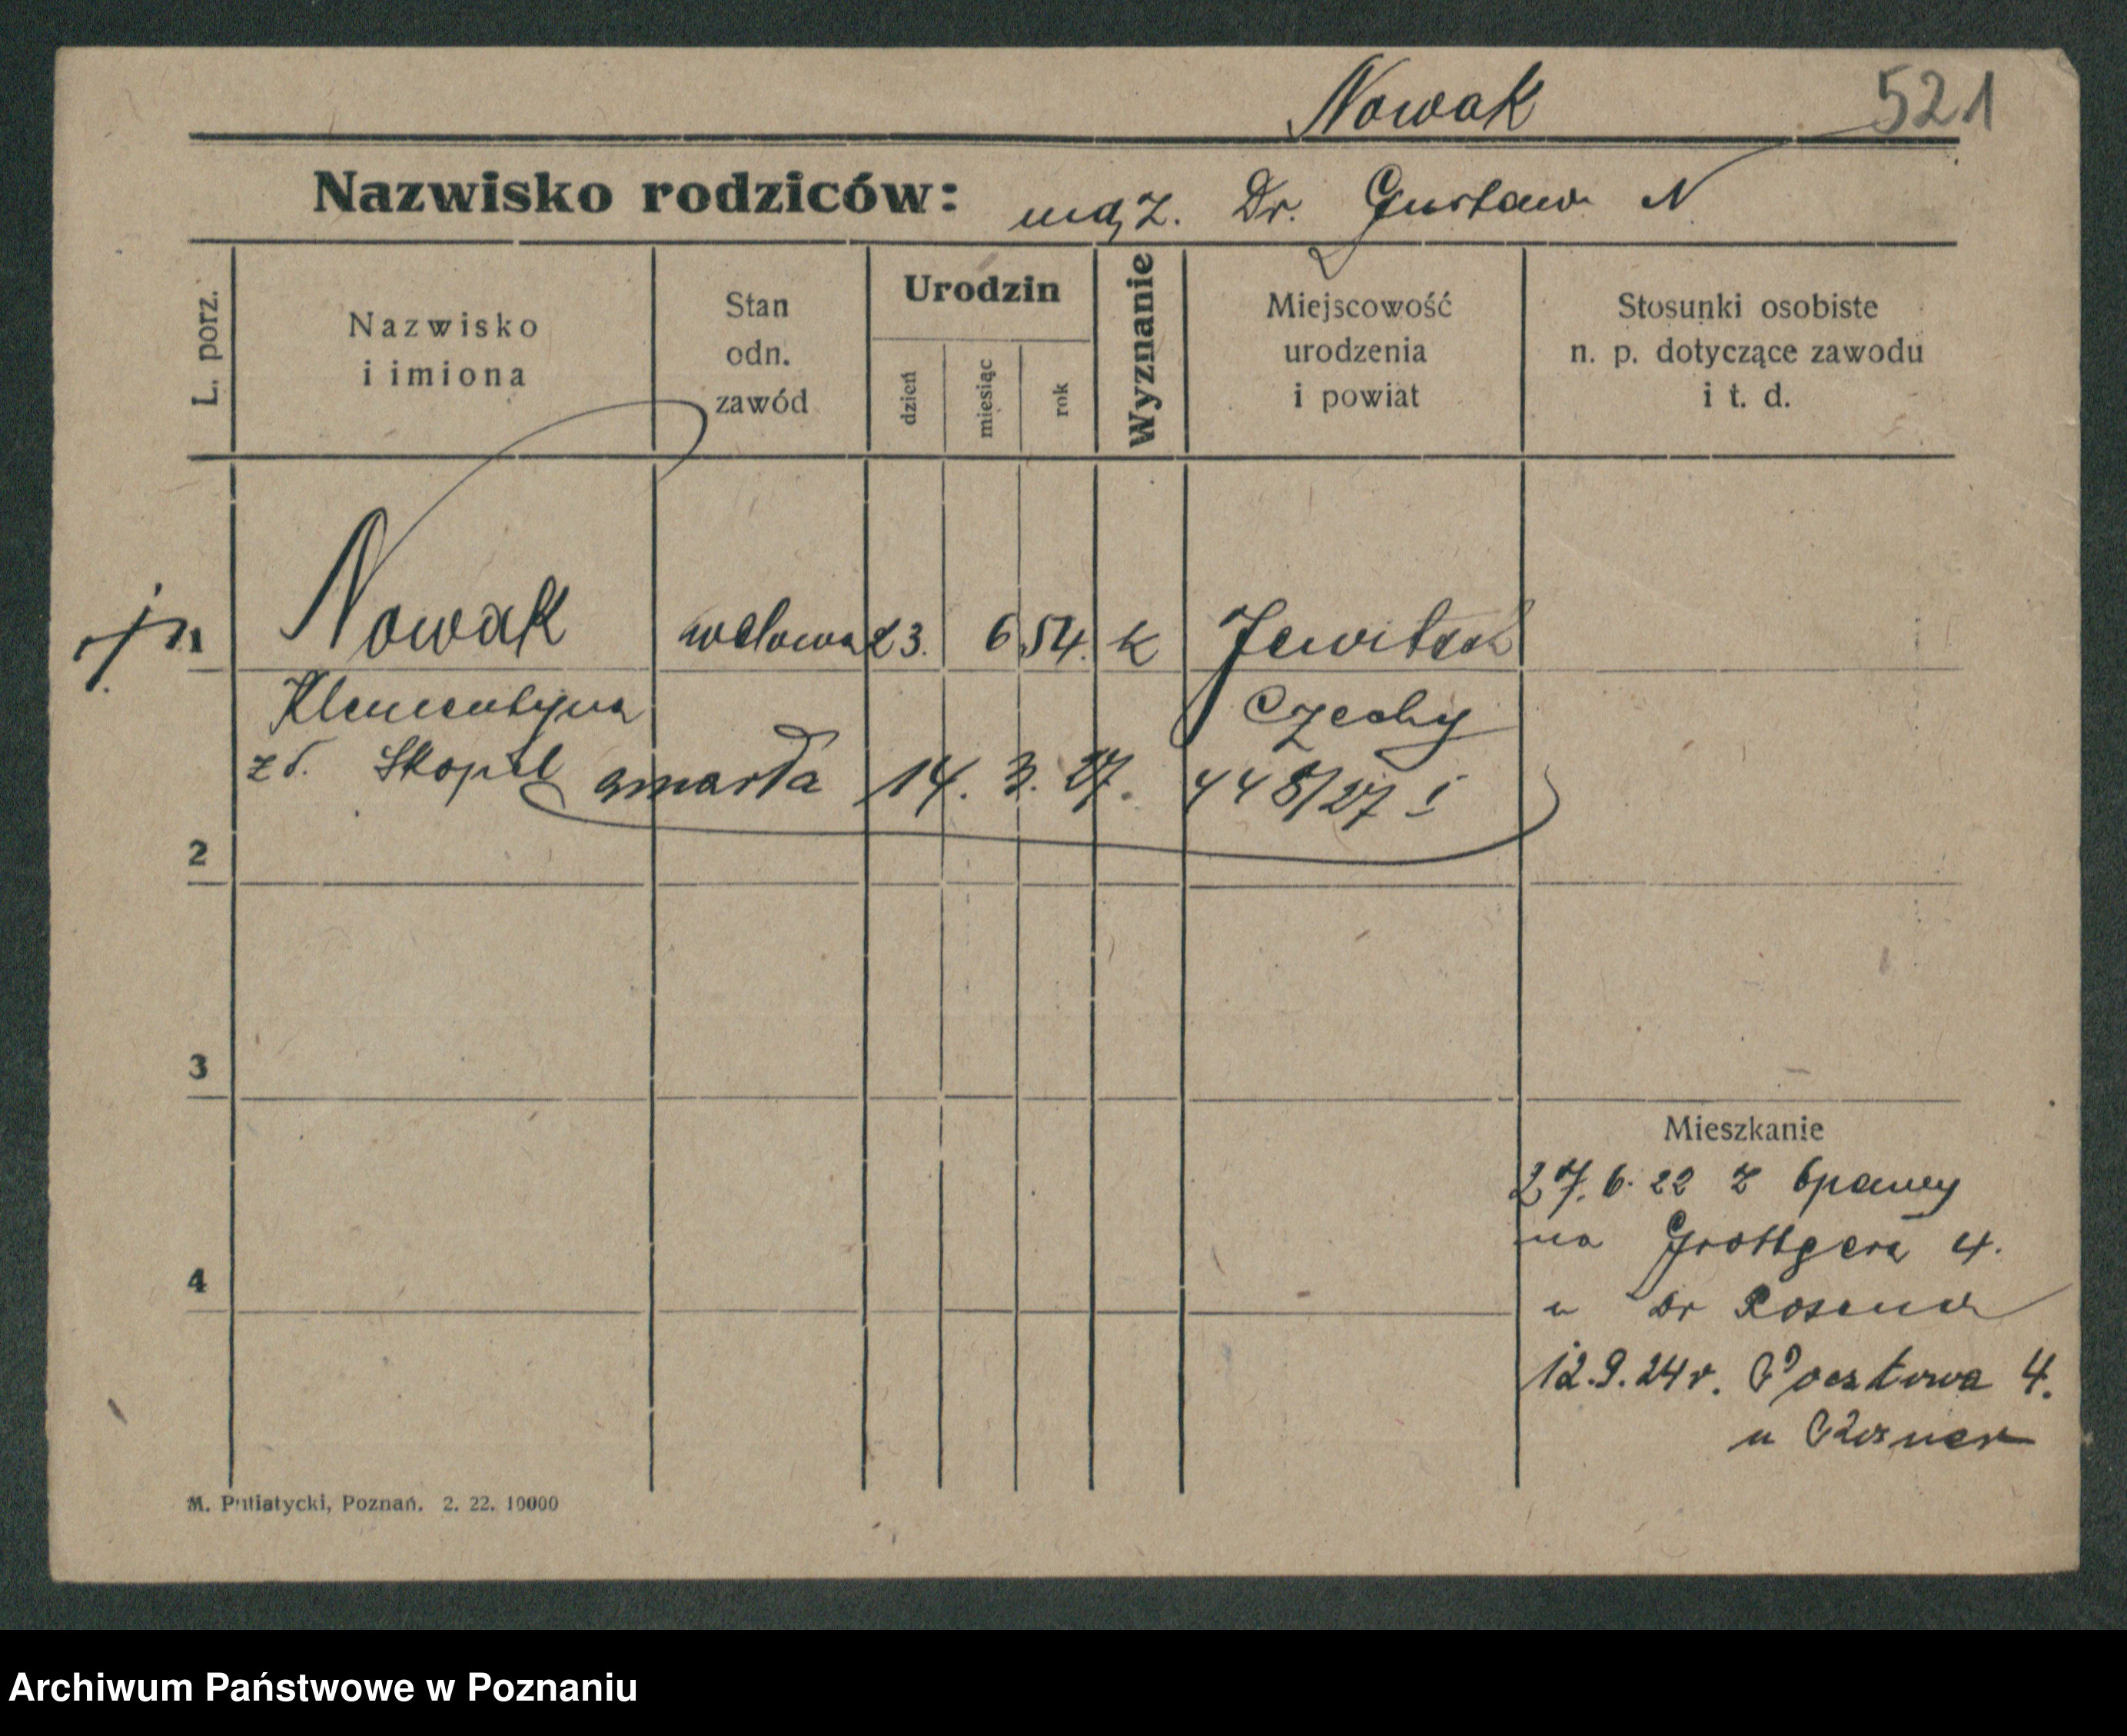 Nowak 521
Nazwisko rodziców: mąż. Dr. Gustaw N
L. porz.
Nazwisko
i imiona
Stan
odn.
zawód
Urodzin
dzień
miesiąc
rok
Wyznanie
Miejscowość
urodzenia
i powiat
Stosunki osobiste
n. p. dotyczące zawodu
i t. d.
Nowak wdowa 23. 6 54. k
Klementyna Czechy
zd. umarła 14. 3. 27. 448/27 I
2
3
Mieszkanie
27. 6. 22 z Opawy
na Grottgera 4.
4
u Dr
12. 9. 24 r. Pocztowa 4.
u
M. Putiatycki, Poznań. 2. 22. 10000
Archiwum Państwowe w Poznaniu